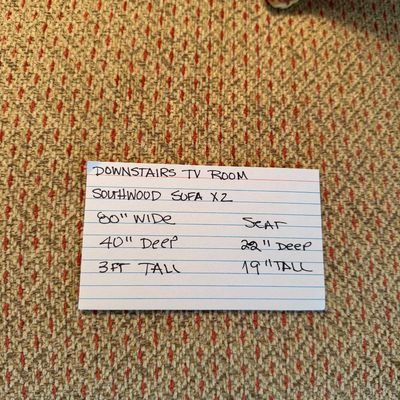 DOWNSTAIRS TV ROOM
SOUTHWOOD SOFA X2
80" WIDE
SEAT
40" DEEP
22" DEEP
3FT TALL
19" TALL